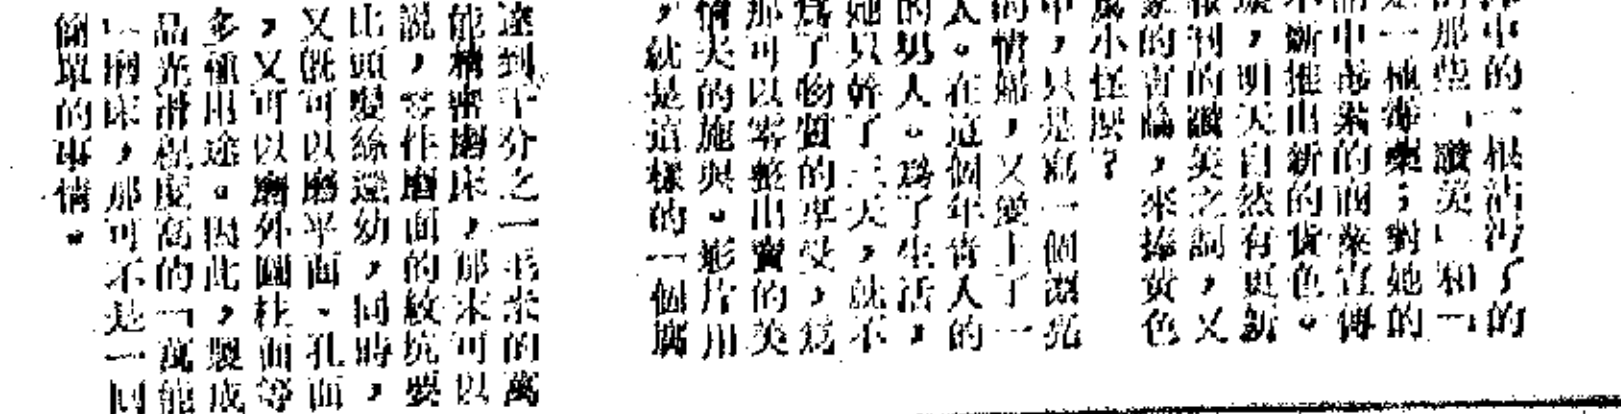 中的一根沾污了的
那些「讚美」和「
一種毒藥；對她的
中商業的商業宣傳
不斷推出新的貨色。
，明天自然有更新
報刊的讚美之詞，又
的言論，來搽黃色
成小怪麼？
中，只是寫一個漂亮
的情婦，又愛上了一
人。在這個年青人的
的男人。爲了生活，
她只幹了三天，就不
爲了物質的享受，爲
那可以零整出賣的美
情夫的施與。影片用
，就是這樣的一個腐
達到千分之一毛米的萬
能精密磨床，那末可以
說，零件磨面的紋坑要
比頭髮絲還幼，同時，
又既可以磨平面、孔面
，又可以磨外圓柱面等
多種用途。因此，製成
品光滑程度高的「萬能
」磨床，那可不是一回
簡單的事情。